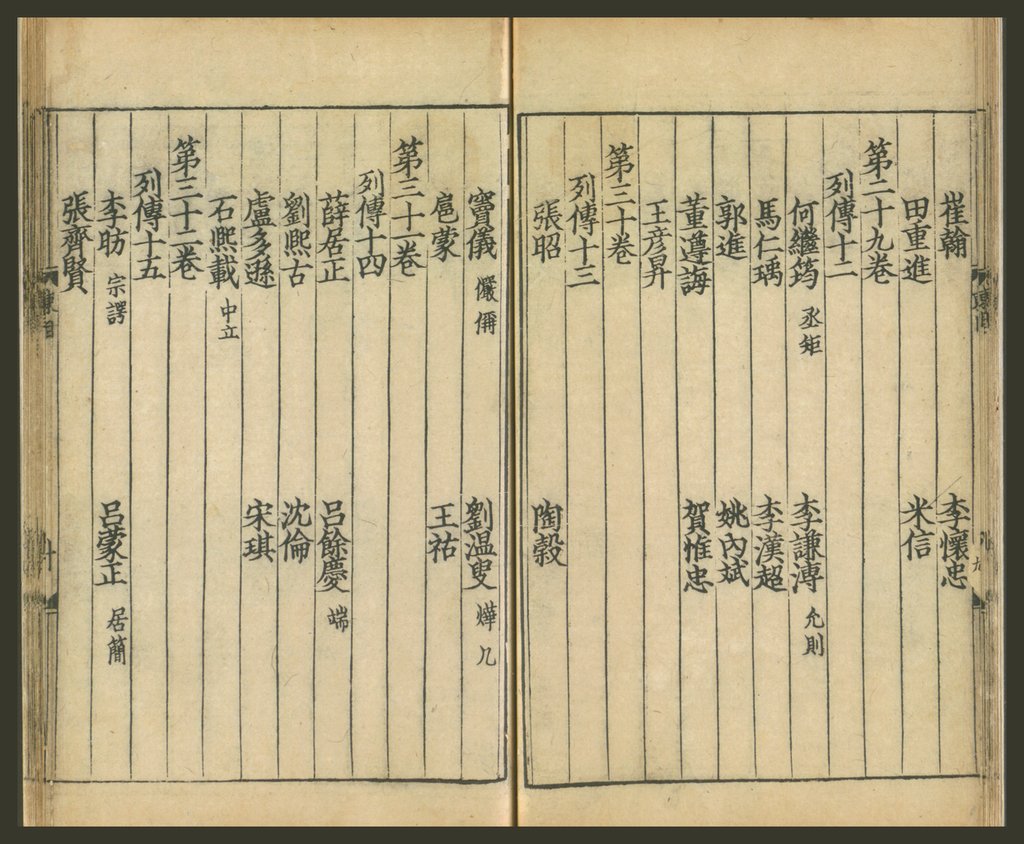 崔翰 李懷忠
田重進 米信
第二十九卷
列傳十二
何繼筠 丞矩 李謙溥 允則
馬仁瑀 李漢超
郭進 姚內斌
董遵誨 賀惟忠
王彥昇
第三十卷
列傳十三
張昭 陶穀
竇儀 儼 侢 劉溫叟 燁 几
扈蒙 王祜
第三十一卷
列傳十四
薛居正 呂餘慶 端
劉熙古 沈倫
盧多遜 宋琪
石熙載 中立
第三十二卷
列傳十五
李昉 宗諤 呂蒙正 居簡
張齊賢